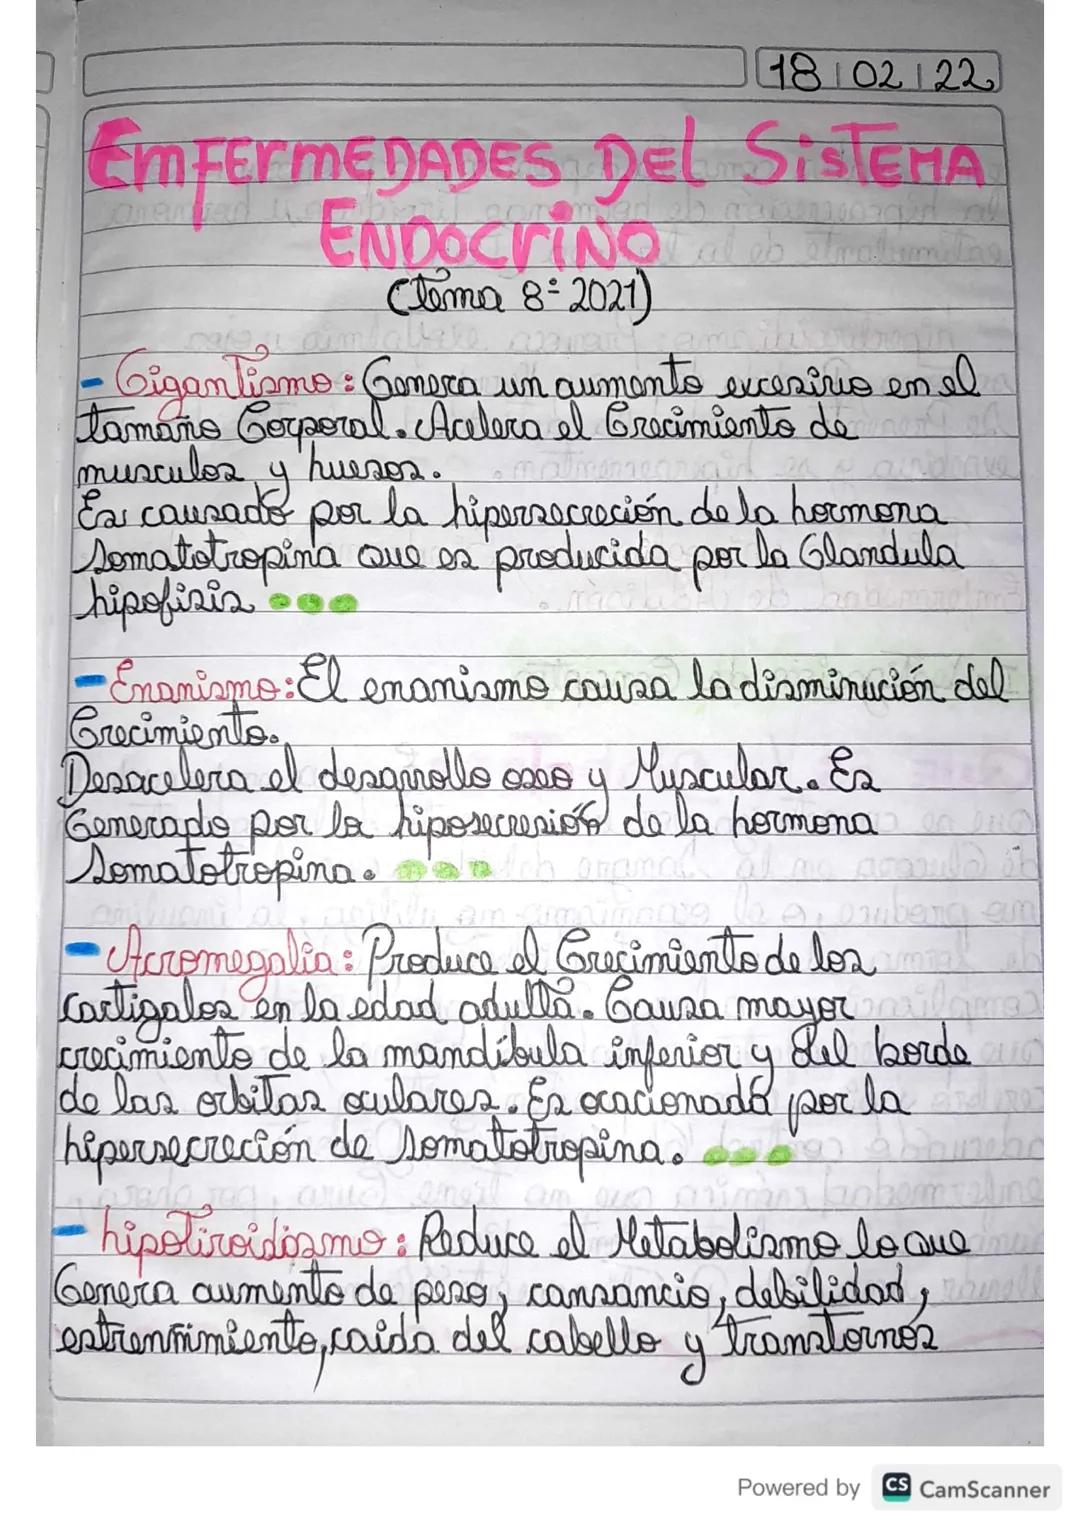 18 02 22
EnfermEDADES Del SisTEMA
ENDOCriNO
(tema 8º 2021)
- Gigantismo: Genera un aumento excesivo en el
tamaño Corporal. Acelera el Crecimiento de
musculos y huesos.
Es causado por la hipersecreción de la hormona
Somatotropina que es producida por la Glandula
hipofisis
- Enanismo: El enanismo causa la disminución del
Crecimiento.
Desacelera el desarrollo oseo y Muscular. Es
Generado por la hiposecresión de la hormona
Somatotropina.
- Acromegalia: Produce el Crecimiento de los
cartigalos en la edad adulta. Causa mayor
crecimiento de la mandíbula inferior y del borde
de las orbitas oculares. Es ocacionada por la
hipersecreción de somatotropina.
- hipotiroidismo: Reduce el Metabolismo lo que
Genera aumento de peso, cansancio, debilidad,
estreñimiento, caida del cabello y transtornos
Powered by CS CamScanner